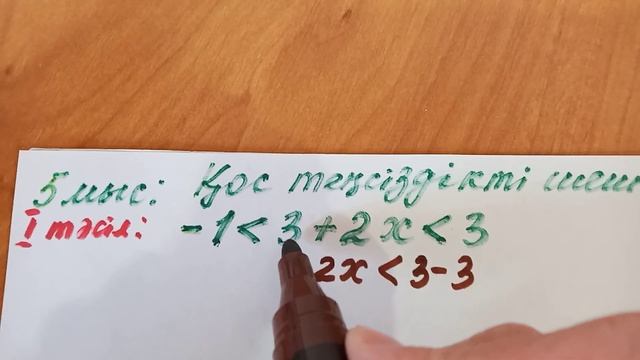 5 мыс: Қос теңсіздікті
I тәсіл: -1 < 3 + 2x < 3
2x < 3-3